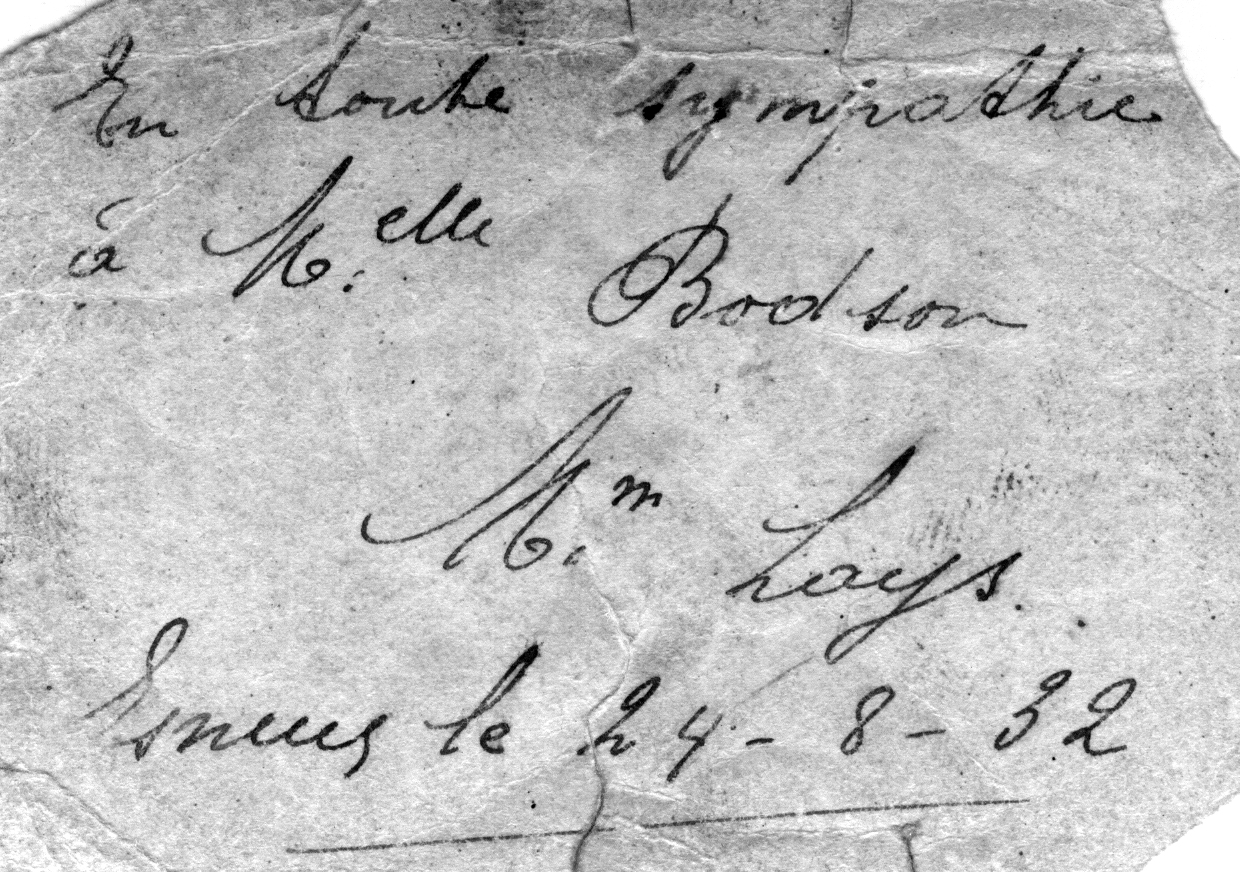 En toute sympathie
à M.elle Bodson
M.m Lays.
Esneux le 24-8-32